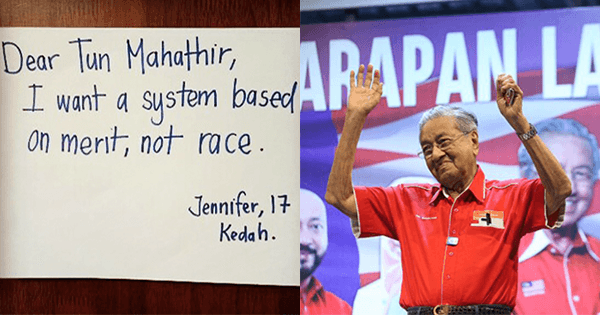 Dear Tun Mahathir,
I want a system based
on merit, not race.
Jennifer, 17
Kedah.
ARAPAN LA